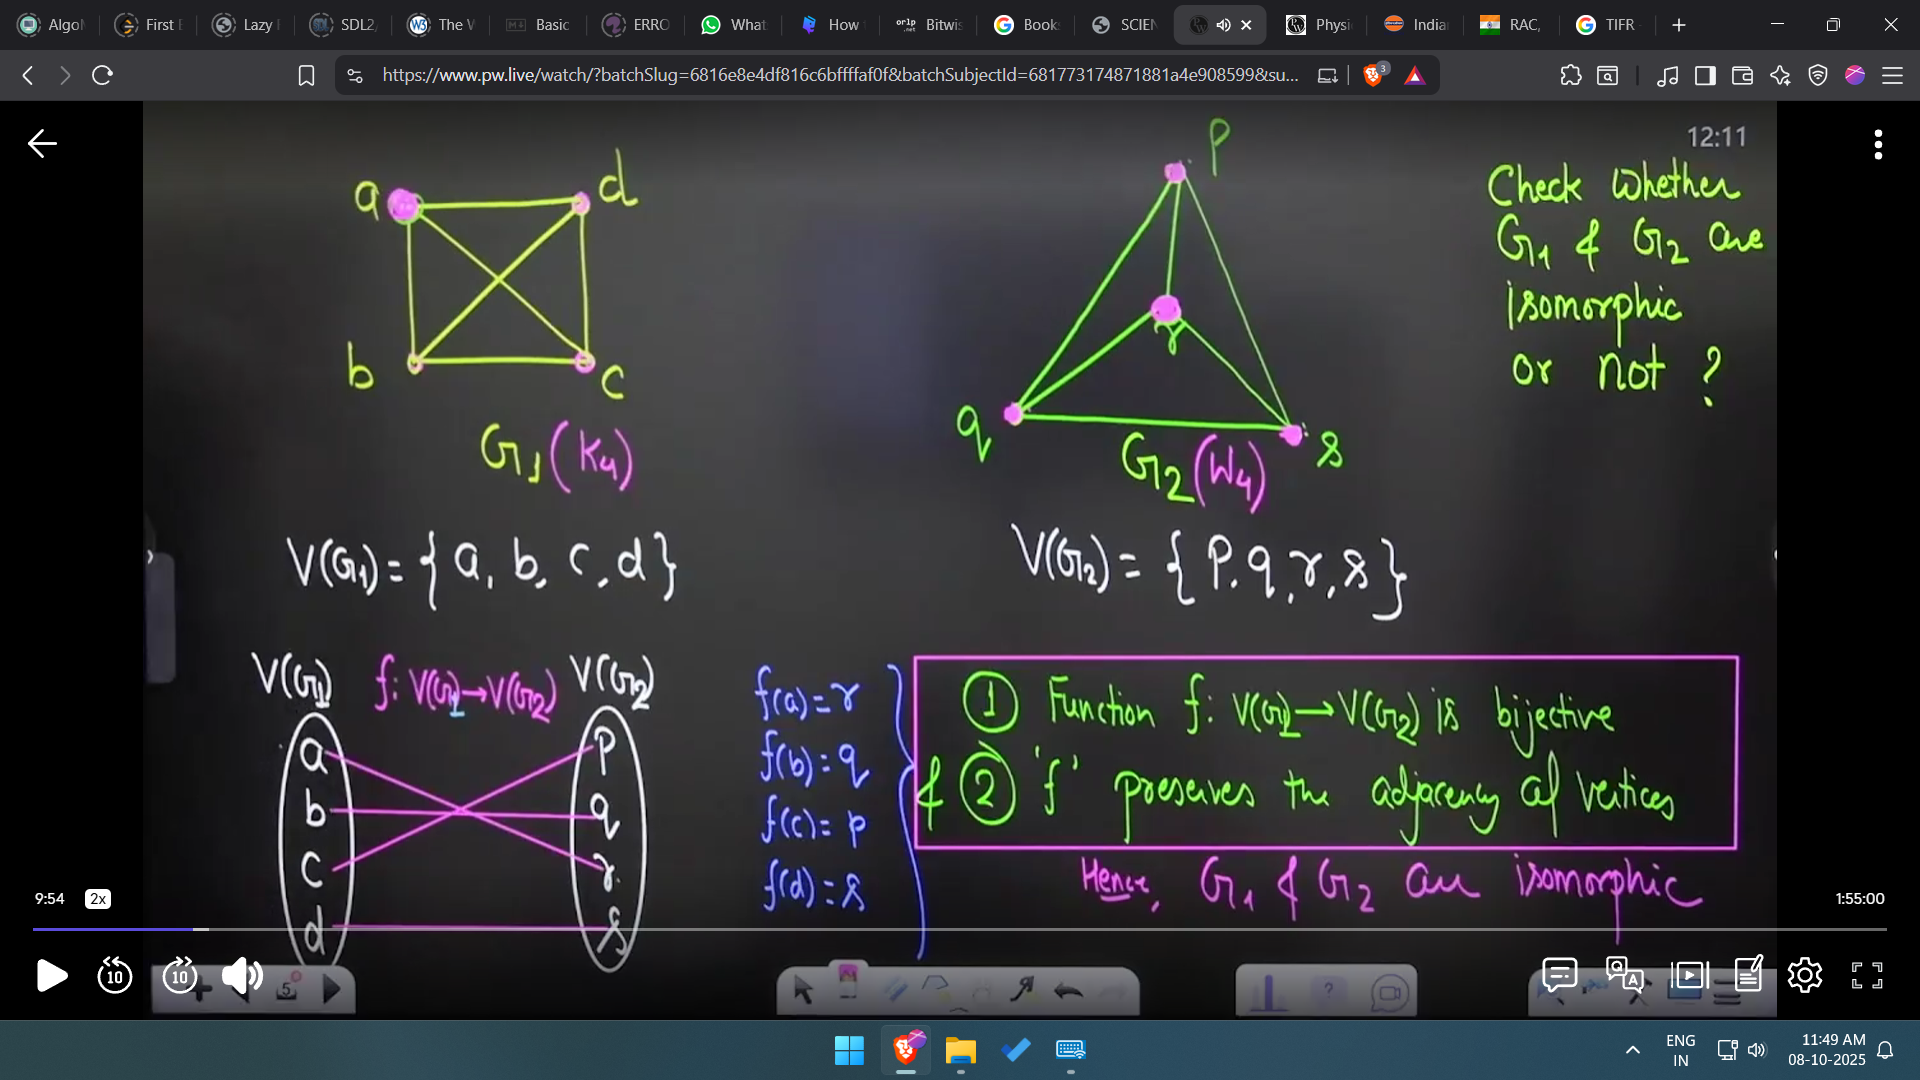 AlgoM
First E
Lazy F
SDL2,
The W
Basic
ERRO
What
How
orlp .net
Bitwis
Book
SCIEN
Physi
India
RAC,
TIFR
https://www.pw.live/watch/?batchSlug=6816e8e4df816c6bffffaf0f&batchSubjectId=681773174871881a4e908599&su...
3
12:11
a
d
b
c
G1 (K4)
P
r
q
s
G2 (W4)
Check Whether
G1 & G2 are
isomorphic
or not ?
V(G1) = { a, b, c, d }
V(G2) = { P, q, r, s }
V(G1) f: V(G1)→V(G2) V(G2)
a
b
c
d
p
q
r
s
f(a) = r
f(b) = q
f(c) = p
f(d) = s
① Function f: V(G1)→V(G2) is bijective
& ② 'f' preserves the adjacency of vertices
Hence, G1 & G2 are isomorphic
9:54 2x
1:55:00
10
10
5
ENG
IN
11:49 AM
08-10-2025